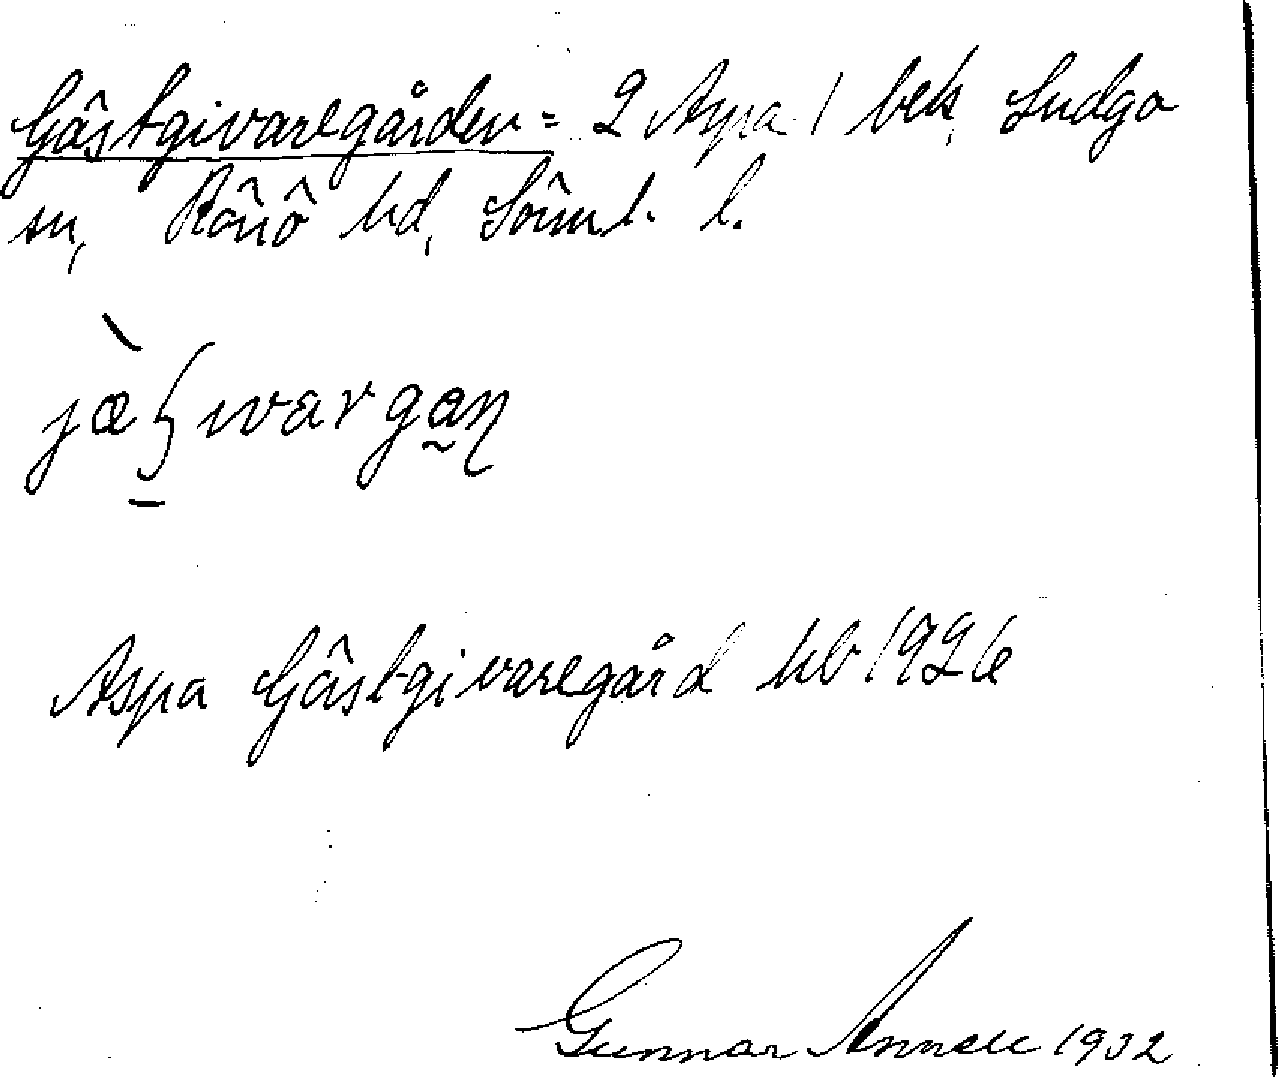 Gästgivaregården = 2 Aspa 1 bek. Ludgo
sn, Rönö hd, Söml. l.
Aspa Gästgivaregård hb 1926
Gunnar Annell 1932